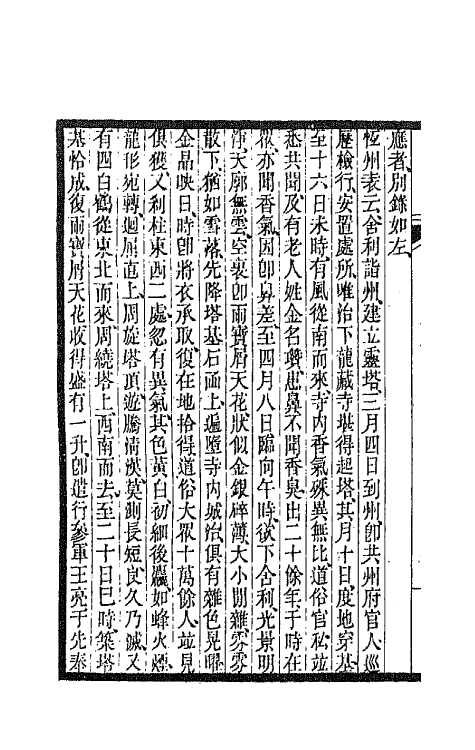 應者別錄如左
恆州表云舍利詣州建立靈塔三月四日到州卽共州府官人巡
歷檢行安置處所唯治下龍藏寺堪得起塔其月十日度地穿基
至十六日未時有風從南而來寺內香氣殊異無比道俗官私並
悉共聞及有老人姓金名瓚患鼻不聞香臭出二十餘年于時在
衆亦聞香氣因卽鼻差至四月八日臨向午時欲下舍利光景明
淨天廓無雲空裏卽雨寶屑天花狀似金銀碎薄大小間雜雰雰
散下猶如雪落先降塔基石函上遍墮寺內城治俱有雜色晃曜
金晶映日時卽將衣承取復在地拾得道俗大衆十萬餘人並見
俱獲又刹柱東西二處忽有異氣其色黃白初細後麤如蜂火煙
龍形宛轉迴屈直上周旋塔頂遊騰淸漢莫測長短良久乃滅又
有四白鶴從東北而來周繞塔上西南而去至二十日巳時築塔
基恰成復雨寶屑天花收得盛有一升卽遣行參軍王亮于先奉